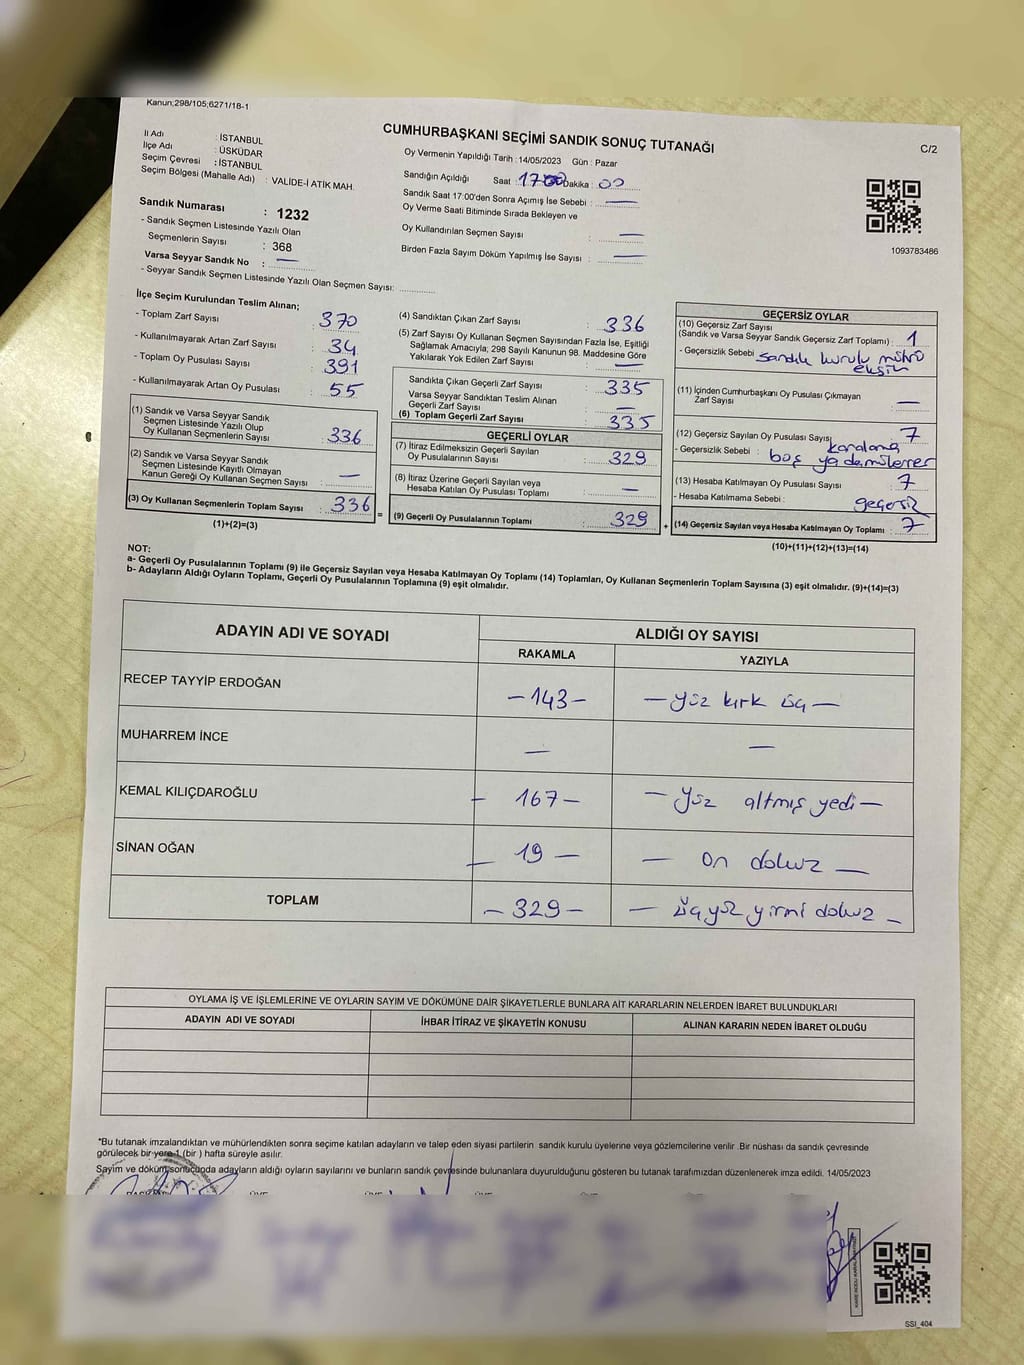 Kanun;298/105;6271/18-1
CUMHURBAŞKANI SEÇİMİ SANDIK SONUÇ TUTANAĞI
C/2
İl Adı : İSTANBUL
İlçe Adı : ÜSKÜDAR
Seçim Çevresi : İSTANBUL
Seçim Bölgesi (Mahalle Adı) : VALİDE-İ ATİK MAH.
Oy Vermenin Yapıldığı Tarih : 14/05/2023 Gün : Pazar
Sandığın Açıldığı Saat : 1700 Dakika : 00
Sandık Saat 17:00'den Sonra Açımış İse Sebebi : —
Oy Verme Saati Bitiminde Sırada Bekleyen ve
Oy Kullandırılan Seçmen Sayısı : —
Birden Fazla Sayım Döküm Yapılmış İse Sayısı : —
1093783486
Sandık Numarası : 1232
- Sandık Seçmen Listesinde Yazılı Olan
Seçmenlerin Sayısı : 368
Varsa Seyyar Sandık No : —
- Seyyar Sandık Seçmen Listesinde Yazılı Olan Seçmen Sayısı: ............
İlçe Seçim Kurulundan Teslim Alınan;
- Toplam Zarf Sayısı : 370
- Kullanılmayarak Artan Zarf Sayısı : 34
- Toplam Oy Pusulası Sayısı : 391
- Kullanılmayarak Artan Oy Pusulası : 55
(1) Sandık ve Varsa Seyyar Sandık
Seçmen Listesinde Yazılı Olup
Oy Kullanan Seçmenlerin Sayısı : 336
(2) Sandık ve Varsa Seyyar Sandık
Seçmen Listesinde Kayıtlı Olmayan
Kanun Gereği Oy Kullanan Seçmen Sayısı : —
(3) Oy Kullanan Seçmenlerin Toplam Sayısı : 336 =
(1)+(2)=(3)
(4) Sandıktan Çıkan Zarf Sayısı : 336
(5) Zarf Sayısı Oy Kullanan Seçmen Sayısından Fazla İse, Eşitliği
Sağlamak Amacıyla; 298 Sayılı Kanunun 98. Maddesine Göre
Yakılarak Yok Edilen Zarf Sayısı : —
Sandıkta Çıkan Geçerli Zarf Sayısı : 335
Varsa Seyyar Sandıktan Teslim Alınan
Geçerli Zarf Sayısı : —
(6) Toplam Geçerli Zarf Sayısı : 335
GEÇERLİ OYLAR
(7) İtiraz Edilmeksizin Geçerli Sayılan
Oy Pusulalarının Sayısı : 329
(8) İtiraz Üzerine Geçerli Sayılan veya
Hesaba Katılan Oy Pusulası Toplamı : —
(9) Geçerli Oy Pusulalarının Toplamı : 329 +
GEÇERSİZ OYLAR
(10) Geçersiz Zarf Sayısı
(Sandık ve Varsa Seyyar Sandık Geçersiz Zarf Toplamı) : 1
- Geçersizlik Sebebi : Sandık kurulu mührü
eksik
(11) İçinden Cumhurbaşkanı Oy Pusulası Çıkmayan
Zarf Sayısı : —
(12) Geçersiz Sayılan Oy Pusulası Sayısı : 7
- Geçersizlik Sebebi : karalama
boş
(13) Hesaba Katılmayan Oy Pusulası Sayısı : 7
- Hesaba Katılmama Sebebi : geçersiz
(14) Geçersiz Sayılan veya Hesaba Katılmayan Oy Toplamı : 7
(10)+(11)+(12)+(13)=(14)
NOT:
a- Geçerli Oy Pusulalarının Toplamı (9) ile Geçersiz Sayılan veya Hesaba Katılmayan Oy Toplamı (14) Toplamları, Oy Kullanan Seçmenlerin Toplam Sayısına (3) eşit olmalıdır. (9)+(14)=(3)
b- Adayların Aldığı Oyların Toplamı, Geçerli Oy Pusulalarının Toplamına (9) eşit olmalıdır.
ADAYIN ADI VE SOYADI ALDIĞI OY SAYISI
RAKAMLA YAZIYLA
RECEP TAYYİP ERDOĞAN — 143 — — yüz kırk üç —
MUHARREM İNCE — —
KEMAL KILIÇDAROĞLU — 167 — — yüz altmış yedi —
SİNAN OĞAN — 19 — — on dokuz —
TOPLAM — 329 — — üçyüz yirmi dokuz —
OYLAMA İŞ VE İŞLEMLERİNE VE OYLARIN SAYIM VE DÖKÜMÜNE DAİR ŞİKAYETLERLE BUNLARA AİT KARARLARIN NELERDEN İBARET BULUNDUKLARI
ADAYIN ADI VE SOYADI İHBAR İTİRAZ VE ŞİKAYETİN KONUSU ALINAN KARARIN NEDEN İBARET OLDUĞU
*Bu tutanak imzalandıktan ve mühürlendikten sonra seçime katılan adayların ve talep eden siyasi partilerin sandık kurulu üyelerine veya gözlemcilerine verilir .Bir nüshası da sandık çevresinde
görülecek bir yere 1 (bir ) hafta süreyle asılır.
Sayım ve döküm sonucunda adayların aldığı oyların sayılarını ve bunların sandık çevresinde bulunanlara duyurulduğunu gösteren bu tutanak tarafımızdan düzenlenerek imza edildi. 14/05/2023
SSI_404